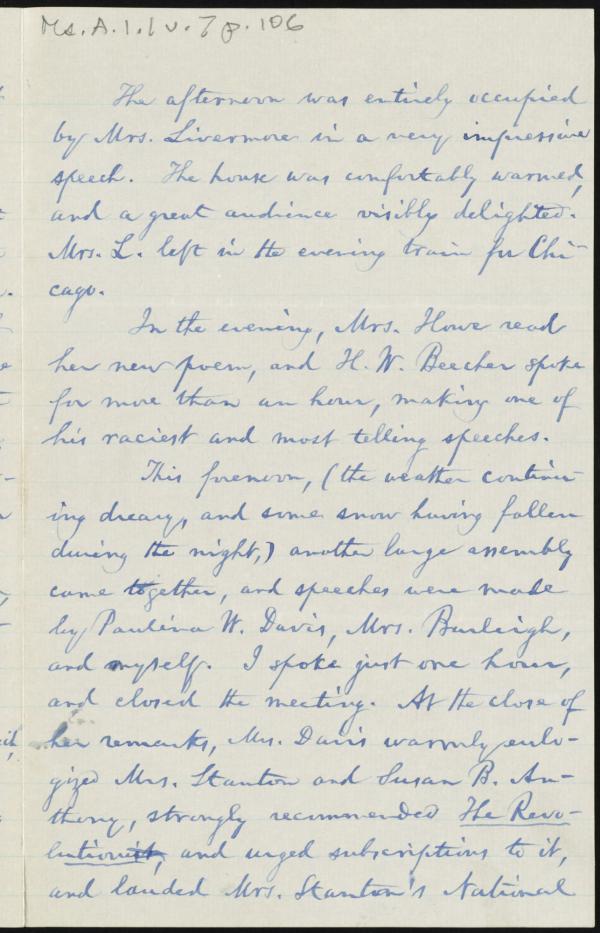 Ms. A. 1. 1 v. 7 p. 106
The afternoon was entirely occupied
by Mrs. Livermore in a very impressive
speech. The house was comfortably warmed,
and a great audience visibly delighted.
Mrs. L. left in the evening train for Chi-
cago.
In the evening, Mrs. Howe read
her new poem, and H. W. Beecher spoke
for more than an hour, making one of
his raciest and most telling speeches.
This forenoon, (the weather continu-
ing dreary, and some snow having fallen
during the night,) another large assembly
came together, and speeches were made
by Paulina W. Davis, Mrs. Burleigh,
and myself. I spoke just one hour,
and closed the meeting. At the close of
her remarks, Mrs. Davis warmly eulo-
gized Mrs. Stanton and Susan B. An-
thony, strongly recommended The Revo-
lution, and urged subscriptions to it,
and lauded Mrs. Stanton's National